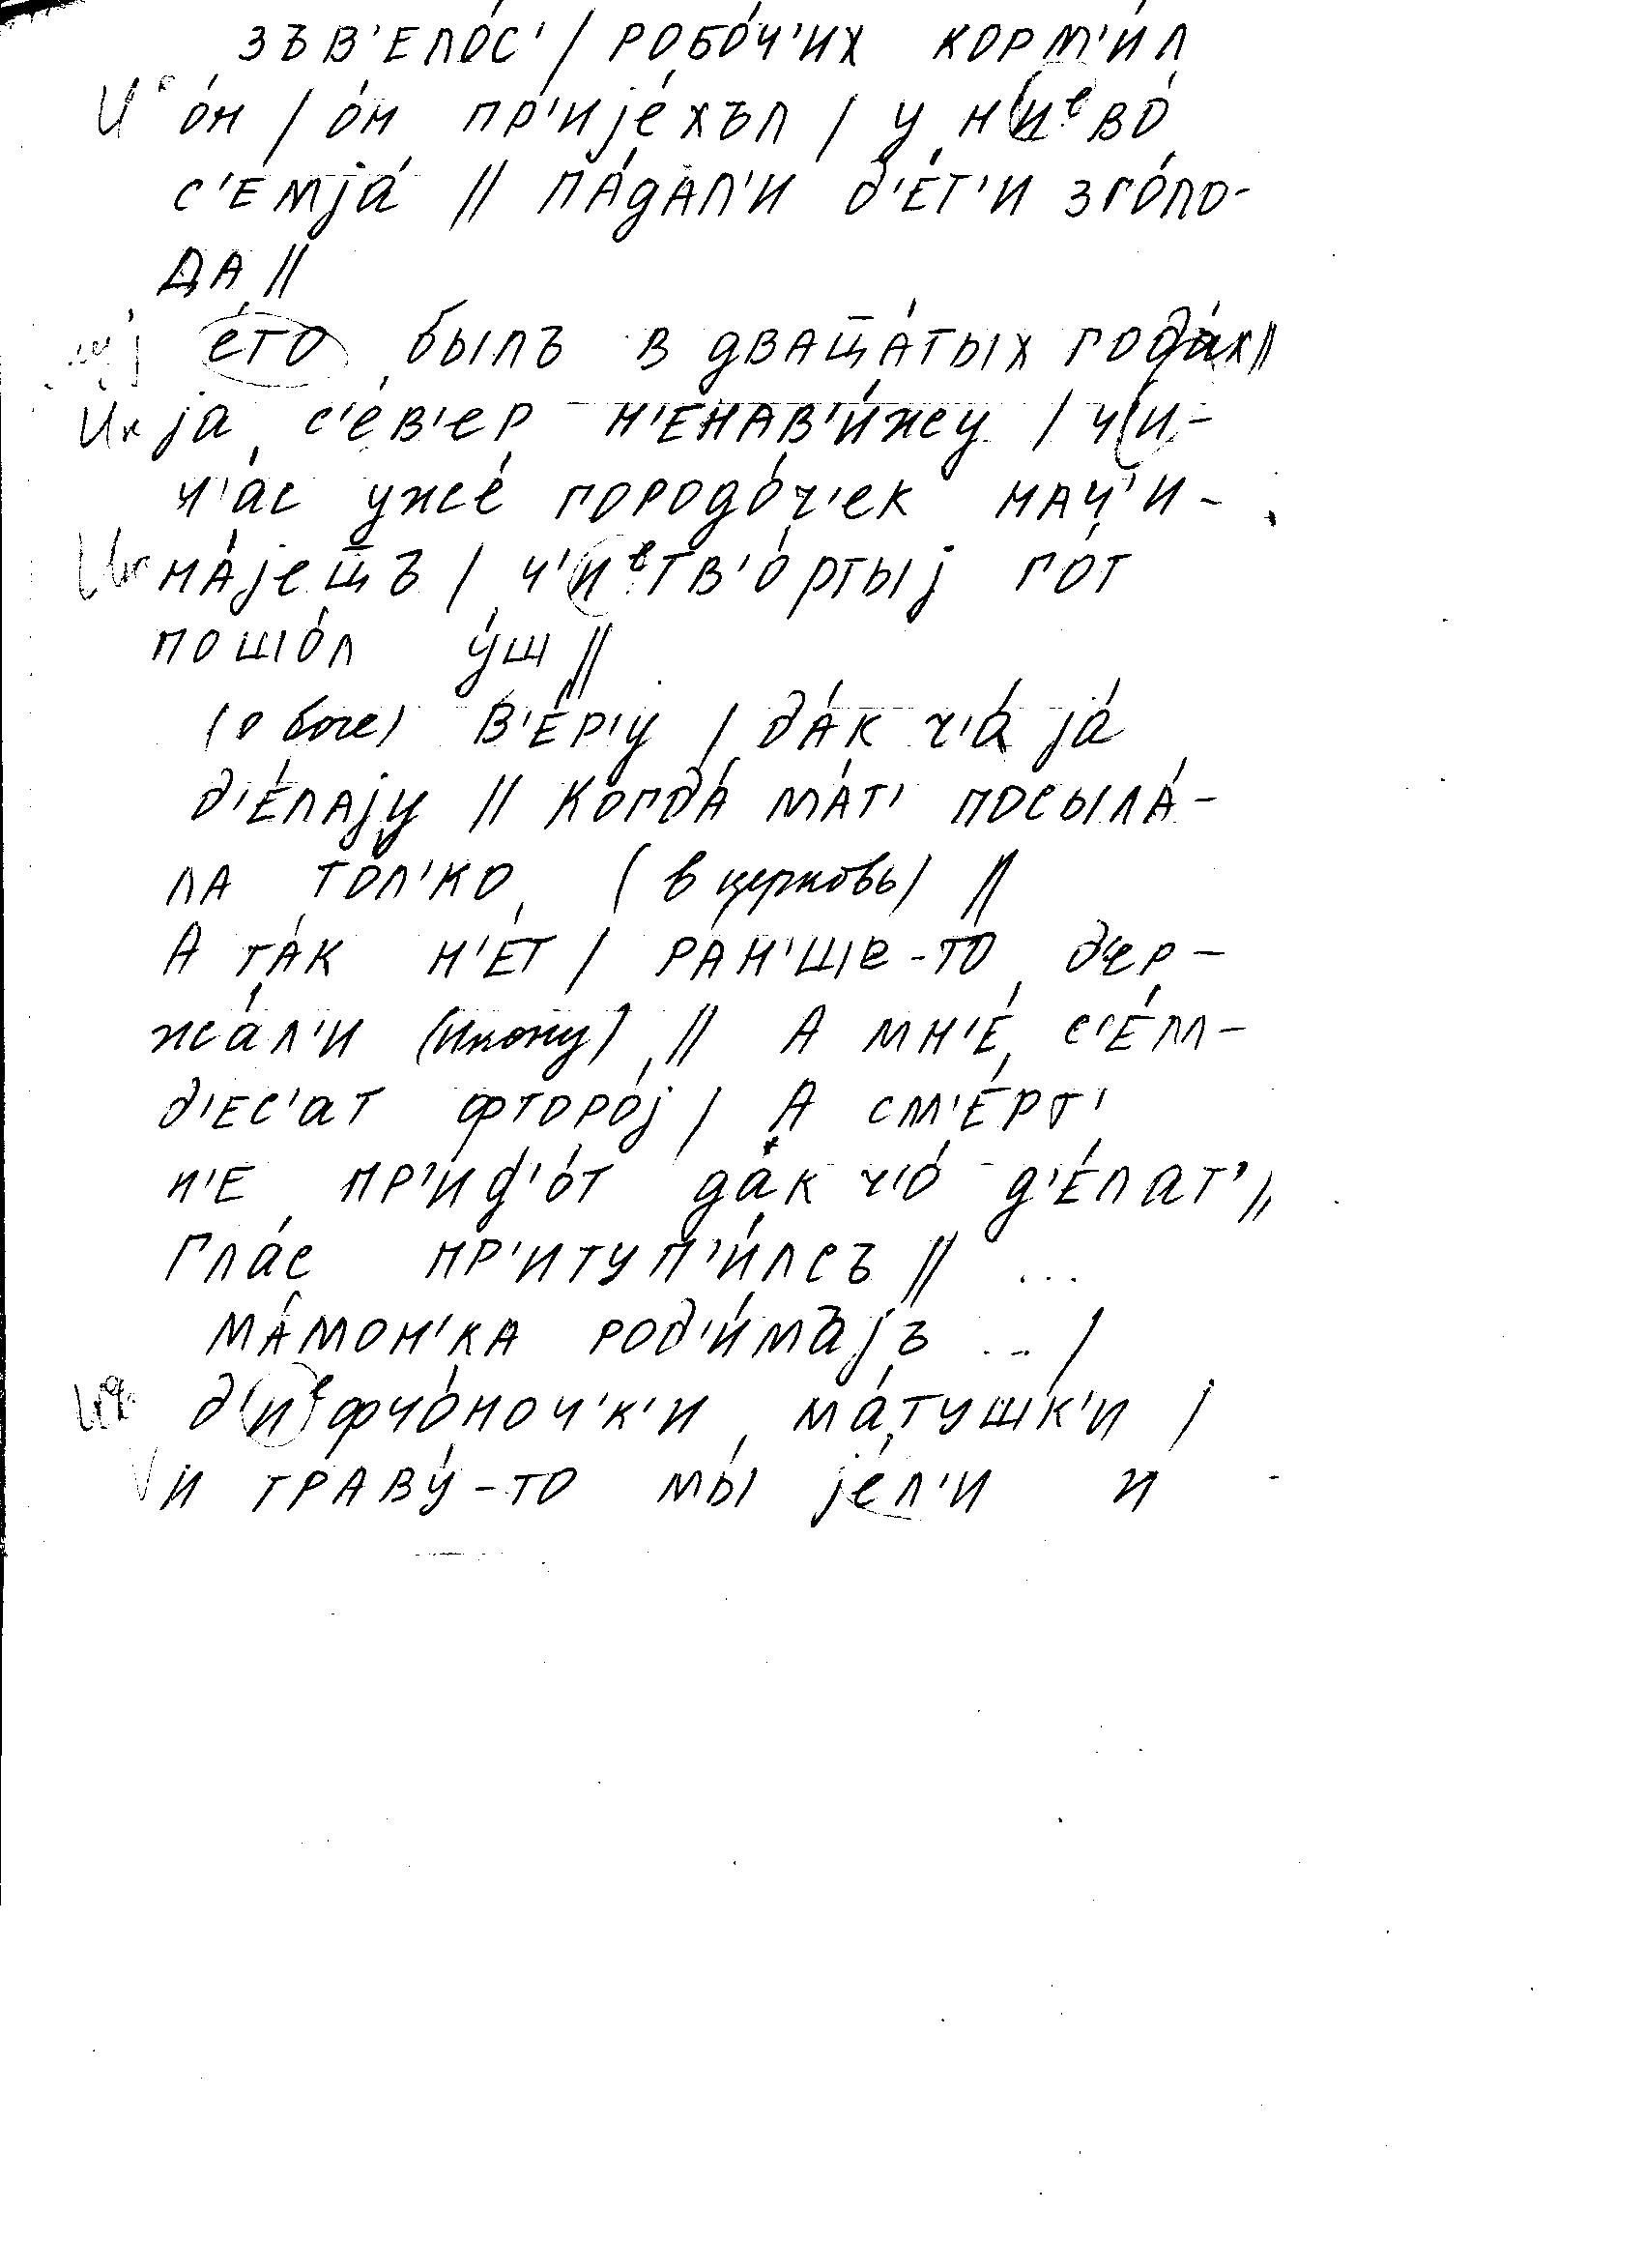 зъв'ело́с' / робо́ч'их корм'и́л
о́н / о́н пр'ијéхъл / у н(иᵉ)во́
с'емја́ // па́дал'и д'е́т'и зго́ло-
да //
е́то былъ в двац̅а́тых года́х //
ја с'е́в'ер н'енав'и́жу / ч(и)-
ч'а́с уже́ городо́ч'ек нач'и-
на́јец̅ъ / ч'(иᵉ)тв'о́ртыј го́т
пошо́л у́ш //
(о боге) в'е́р'у / да́к ч'а́ ја́
д'е́лају // когда́ ма́т' посыла́-
ла то́л'ко (в церковь) //
А та́к н'е́т / ра́н'ше-то д'ер-
жа́л'и (икону) // А мн'е́ с'е́м-
д'ес'ат фторо́ј / А см'е́рт'
н'е пр'ид'о́т да́к ч'о́ д'е́лат' //
Гла́с пр'итуп'и́лсъ // ...
ма́мон'ка род'и́мъјъ ... /
д'(иᵉ)фчо́ноч'к'и ма́тушк'и /
и траву́-то мы́ је́л'и и